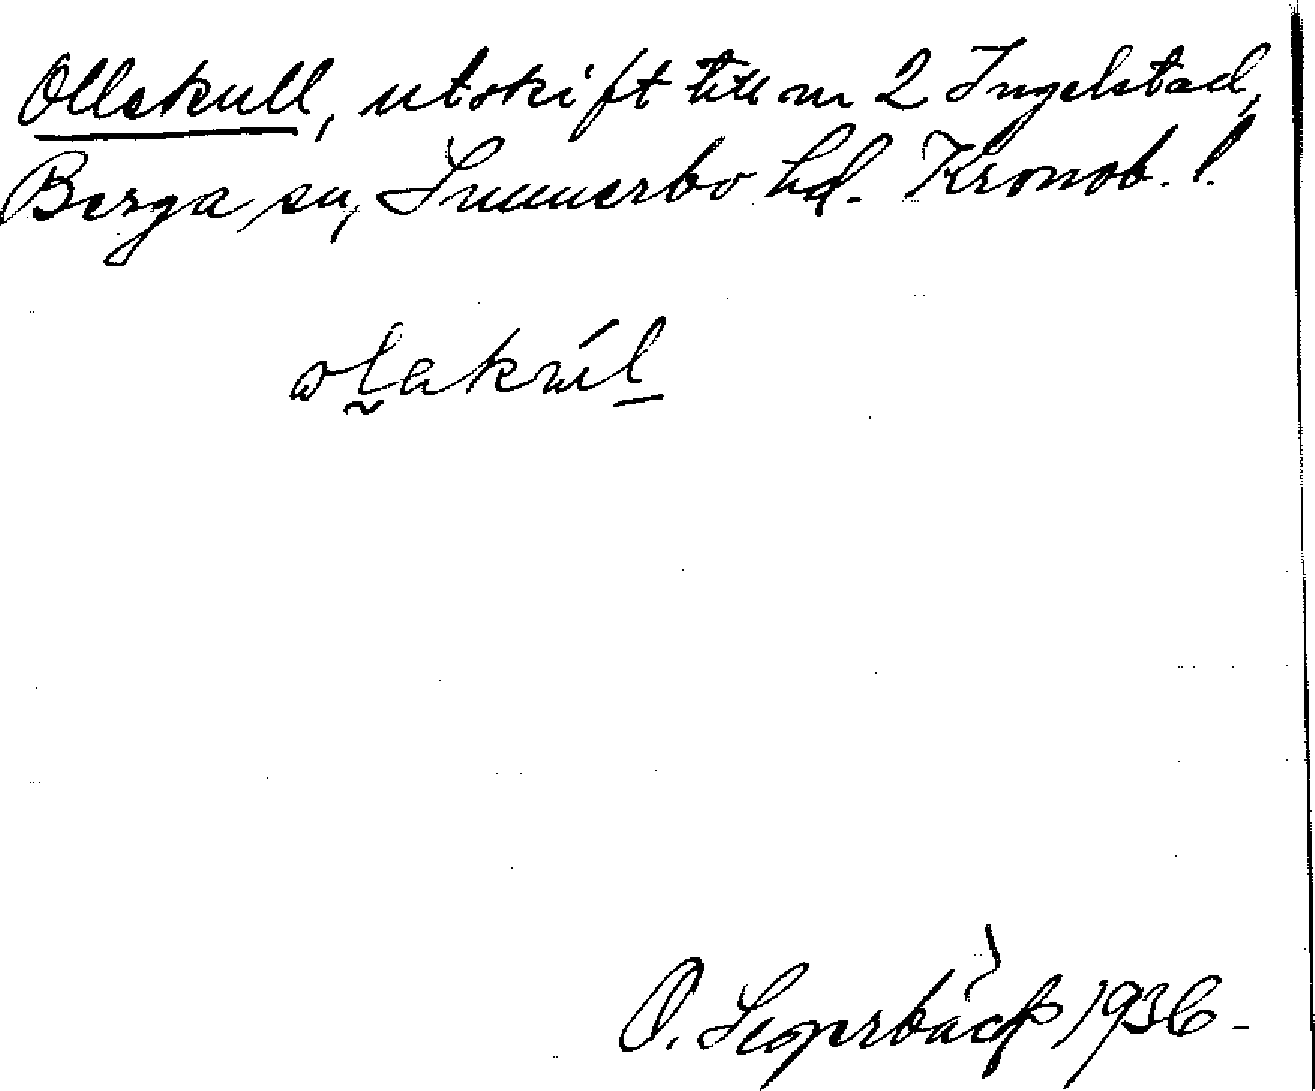 Ollekull, utskift till nr 2 Ingelstad,
Berga sn, Sunnerbo hd. Kronob. l.
O. Segerbäck 1936